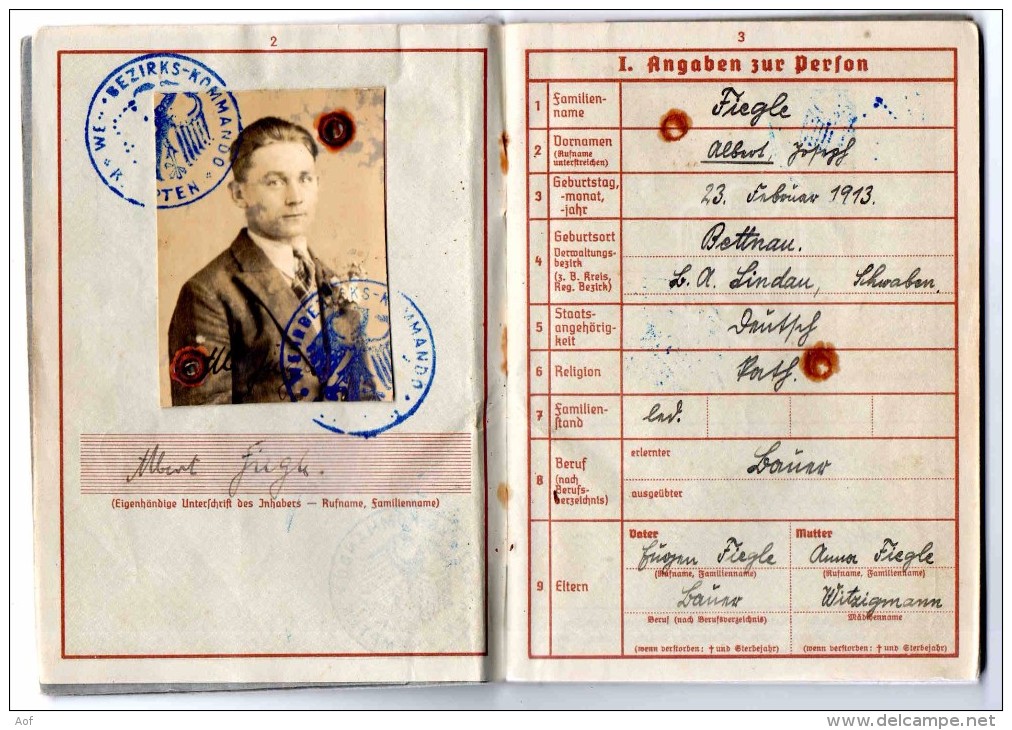 2
WE · BEZIRKS-KOMMANDO
K PTEN
WEHRBEZIRKS-KOMMANDO
Albert Fiegle.
(Eigenhändige Unterschrift des Inhabers — Rufname, Familienname)
3
I. Angaben zur Person
1 Familien-
name
Fiegle
2 Vornamen
(Rufname
unterstreichen)
Albert, Joseph
3 Geburtstag,
-monat,
-jahr
23. Februar 1913.
4 Geburtsort
Verwaltungs-
bezirk
(z. B. Kreis,
Reg. Bezirk)
Bettnau.
B. A. Lindau, Schwaben.
5 Staats-
angehörig-
keit
Deutsch
6 Religion
kath.
7 Familien-
stand
led.
8 Beruf
(nach
Berufs-
verzeichnis)
erlernter
Bauer
ausgeübter
9 Eltern
Vater
Eugen Fiegle
(Rufname, Familienname)
Bauer
Beruf (nach Berufsverzeichnis)
(wenn verstorben: † und Sterbejahr)
Mutter
Anna Fiegle
(Rufname, Familienname)
Witzigmann
Mädchenname
(wenn verstorben: † und Sterbejahr)
Aof
www.delcampe.net